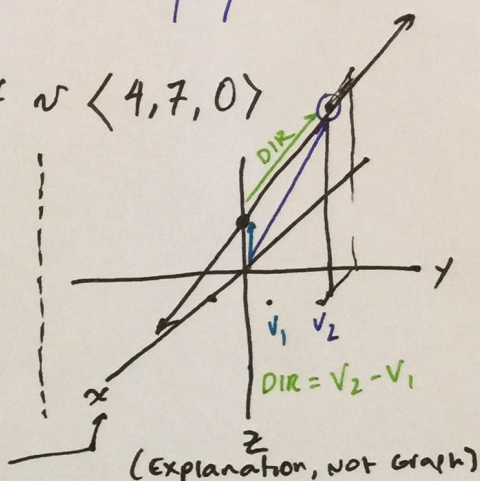 ~ <4,7,0>
DIR
Y
V1 V2
DIR = V2 - V1
x
z
(Explanation, Not Graph)